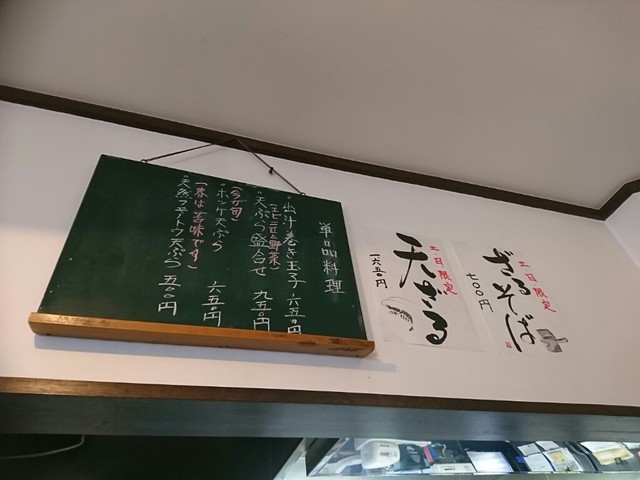 土日限定
ざるそば
七〇〇円
土日限定
天ざる
一六五〇円
単品料理
・出汁巻き玉子 六五〇円
・天ぷら盛合せ 九五〇円
(エビ二尾と野菜)
・ホッケ天ぷら 六五〇円
(今が旬)
・天然フキノトウ天ぷら 五五〇円
(春は苦味です)